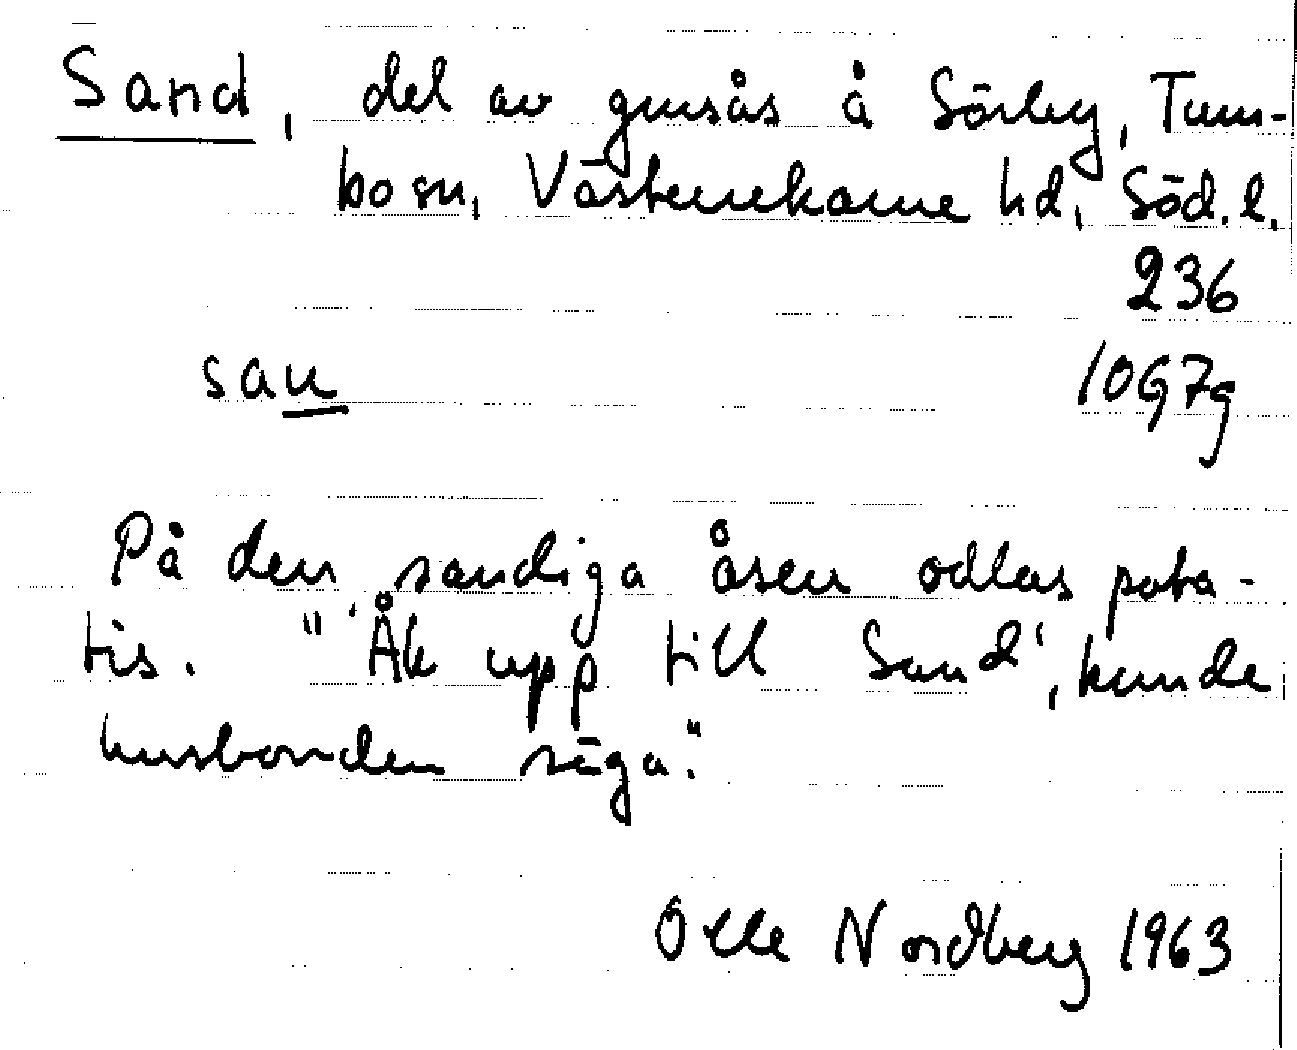 Sand, del av grusås å Sörby, Tum-
bo sn, Västerrekarne hd, Söd. l.
236
san 10G7g
På den sandiga åsen odlas pota-
tis. "'Åk upp till Sand', kunde
husbonden säga."
Olle Nordberg 1963